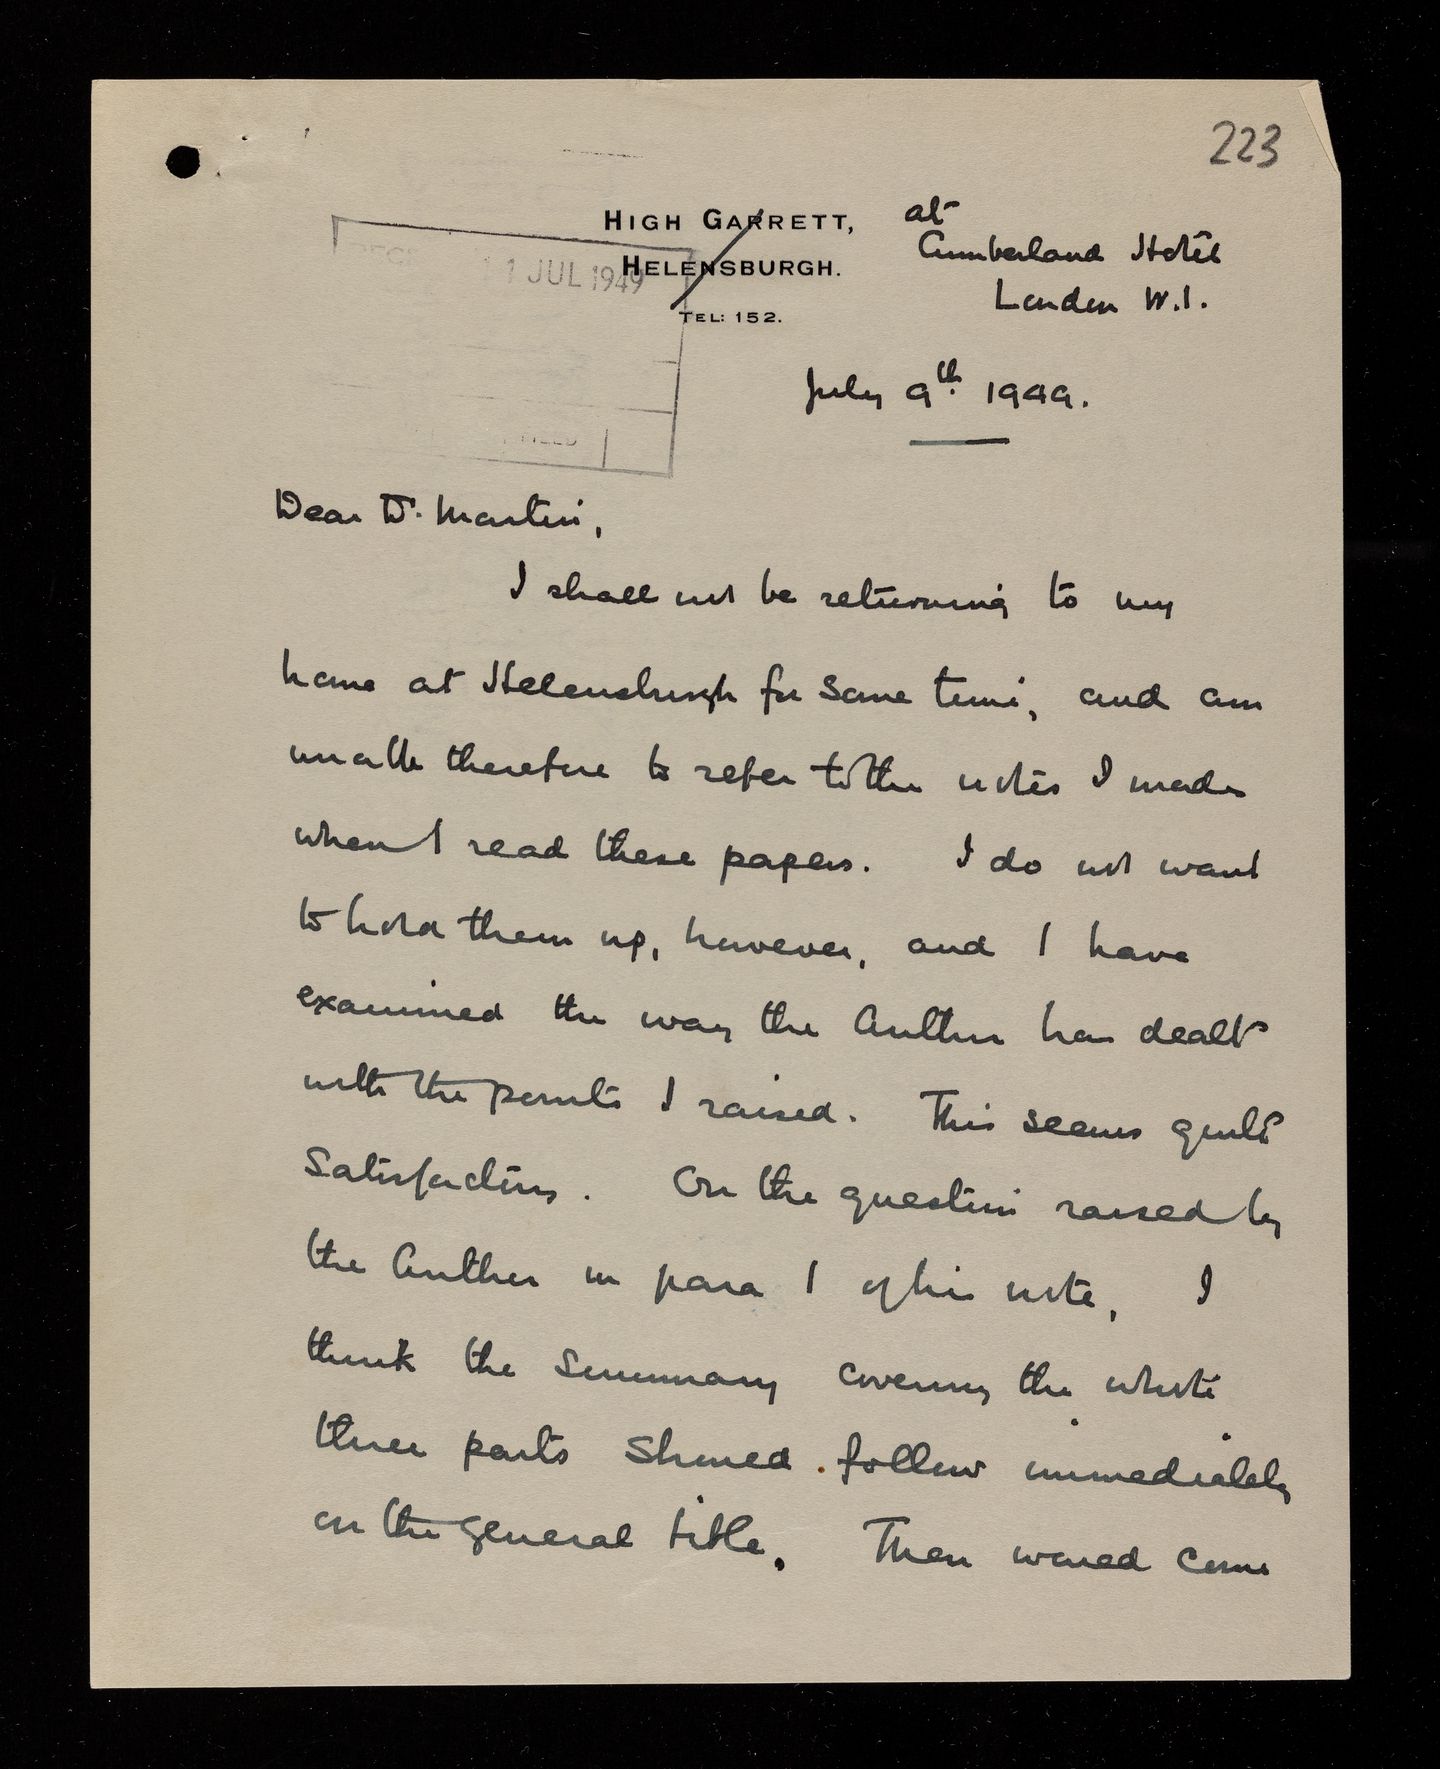 223
HIGH GARRETT,
HELENSBURGH.
TEL: 152.
at
Cumberland Hotel
London W.1.
1 JUL 1949
July 9th 1949.
Dear Dr. Martin,
I shall not be returning to my
home at Helensburgh for some time, and am
unable therefore to refer to the notes I made
when I read these papers. I do not want
to hold them up, however, and I have
examined the way the Author has dealt
with the points I raised. This seems quite
satisfactory. On the question raised by
the Author in para 1 of his note, I
think the Summary covering the whole
three parts should follow immediately
on the general title. Then would come